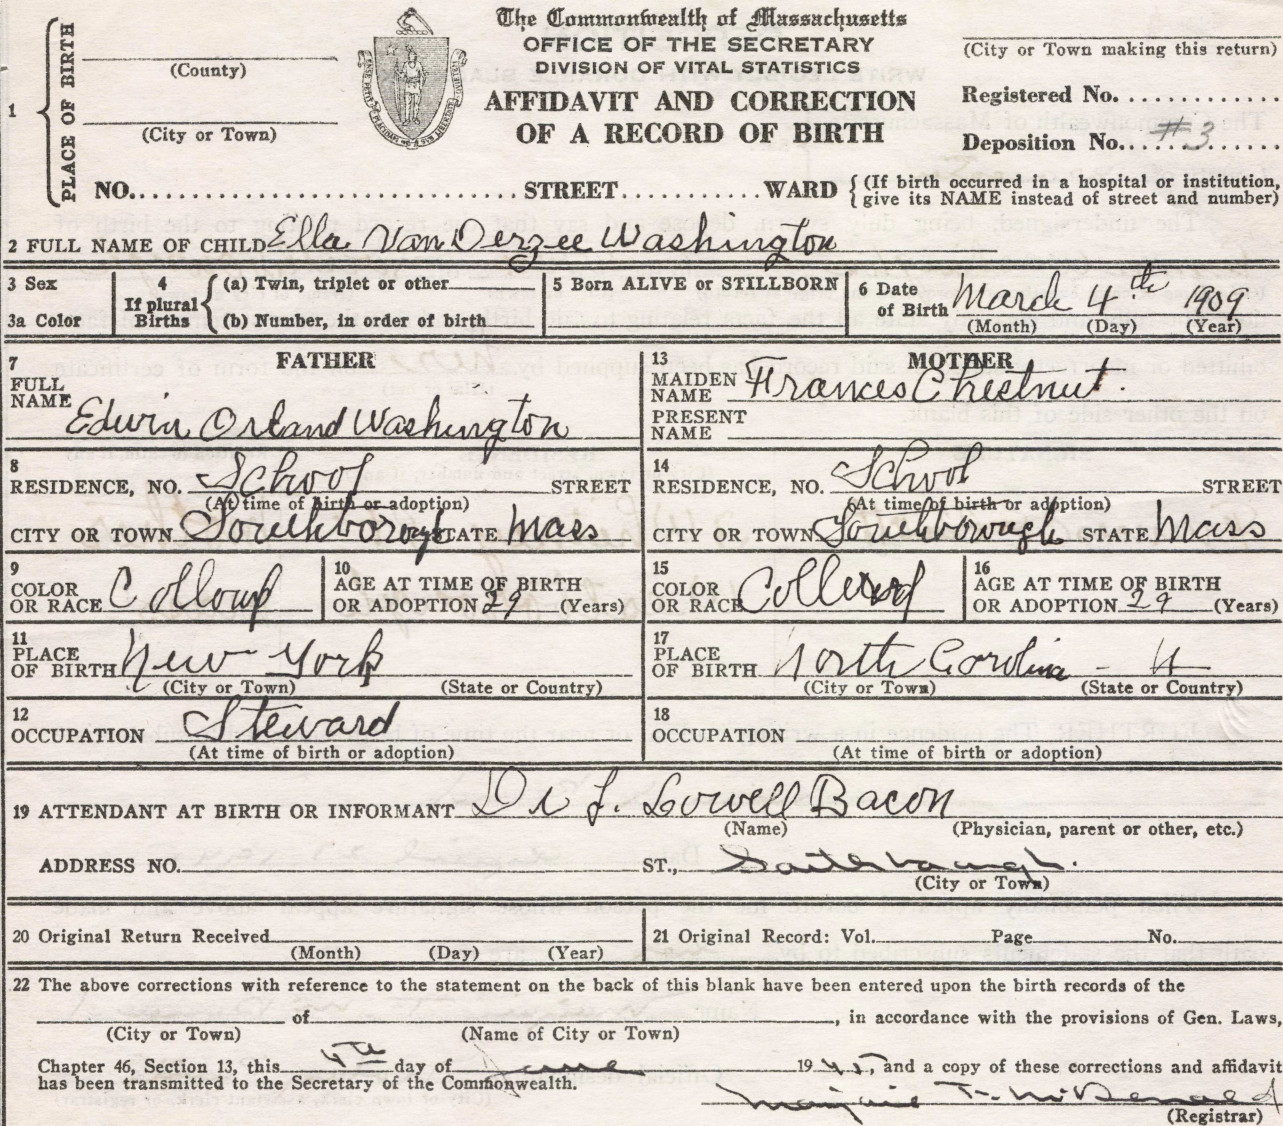 The Commonwealth of Massachusetts
OFFICE OF THE SECRETARY
DIVISION OF VITAL STATISTICS
AFFIDAVIT AND CORRECTION
OF A RECORD OF BIRTH
1 PLACE OF BIRTH
(County)
(City or Town)
(City or Town making this return)
Registered No.............
Deposition No...#3........
NO............................... STREET............ WARD {(If birth occurred in a hospital or institution,
give its NAME instead of street and number)
2 FULL NAME OF CHILD Ella Van Derzee Washington
3 Sex
3a Color
4 If plural Births { (a) Twin, triplet or other
(b) Number, in order of birth
5 Born ALIVE or STILLBORN
6 Date of Birth March 4th 1909
(Month) (Day) (Year)
FATHER
7 FULL NAME
Edwin Orland Washington
8 RESIDENCE, NO. School STREET
(At time of birth or adoption)
CITY OR TOWN Southborough STATE Mass
9 COLOR OR RACE
10 AGE AT TIME OF BIRTH OR ADOPTION 29 (Years)
11 PLACE OF BIRTH New York
(City or Town) (State or Country)
12 OCCUPATION Steward
(At time of birth or adoption)
MOTHER
13 MAIDEN NAME Frances Chestnut.
PRESENT NAME
14 RESIDENCE, NO. School STREET
(At time of birth or adoption)
CITY OR TOWN Southborough STATE Mass
15 COLOR OR RACE
16 AGE AT TIME OF BIRTH OR ADOPTION 29 (Years)
17 PLACE OF BIRTH North Carolina -
(City or Town) (State or Country)
18 OCCUPATION
(At time of birth or adoption)
19 ATTENDANT AT BIRTH OR INFORMANT Dr J. Lowell Bacon
(Name) (Physician, parent or other, etc.)
ADDRESS NO. ST., Southborough.
(City or Town)
20 Original Return Received
(Month) (Day) (Year)
21 Original Record: Vol. Page No.
22 The above corrections with reference to the statement on the back of this blank have been entered upon the birth records of the
of , in accordance with the provisions of Gen. Laws,
(City or Town) (Name of City or Town)
Chapter 46, Section 13, this 4th day of June 19 45, and a copy of these corrections and affidavit
has been transmitted to the Secretary of the Commonwealth.
Marjorie F. McDonald
(Registrar)